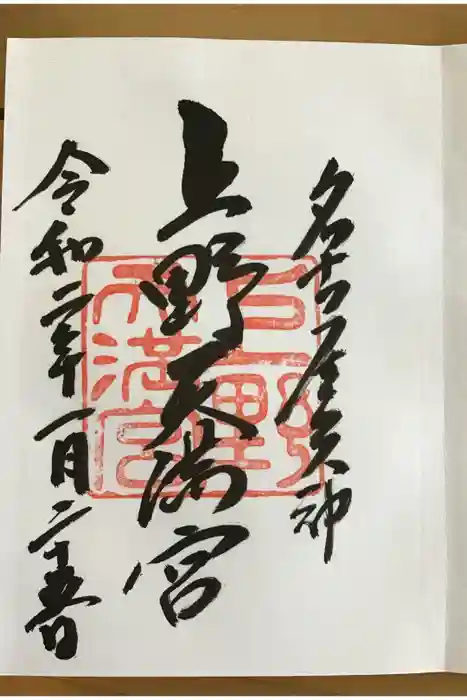 名古屋天神
上野天満宮
令和二年一月二十五日
上野
天満宮